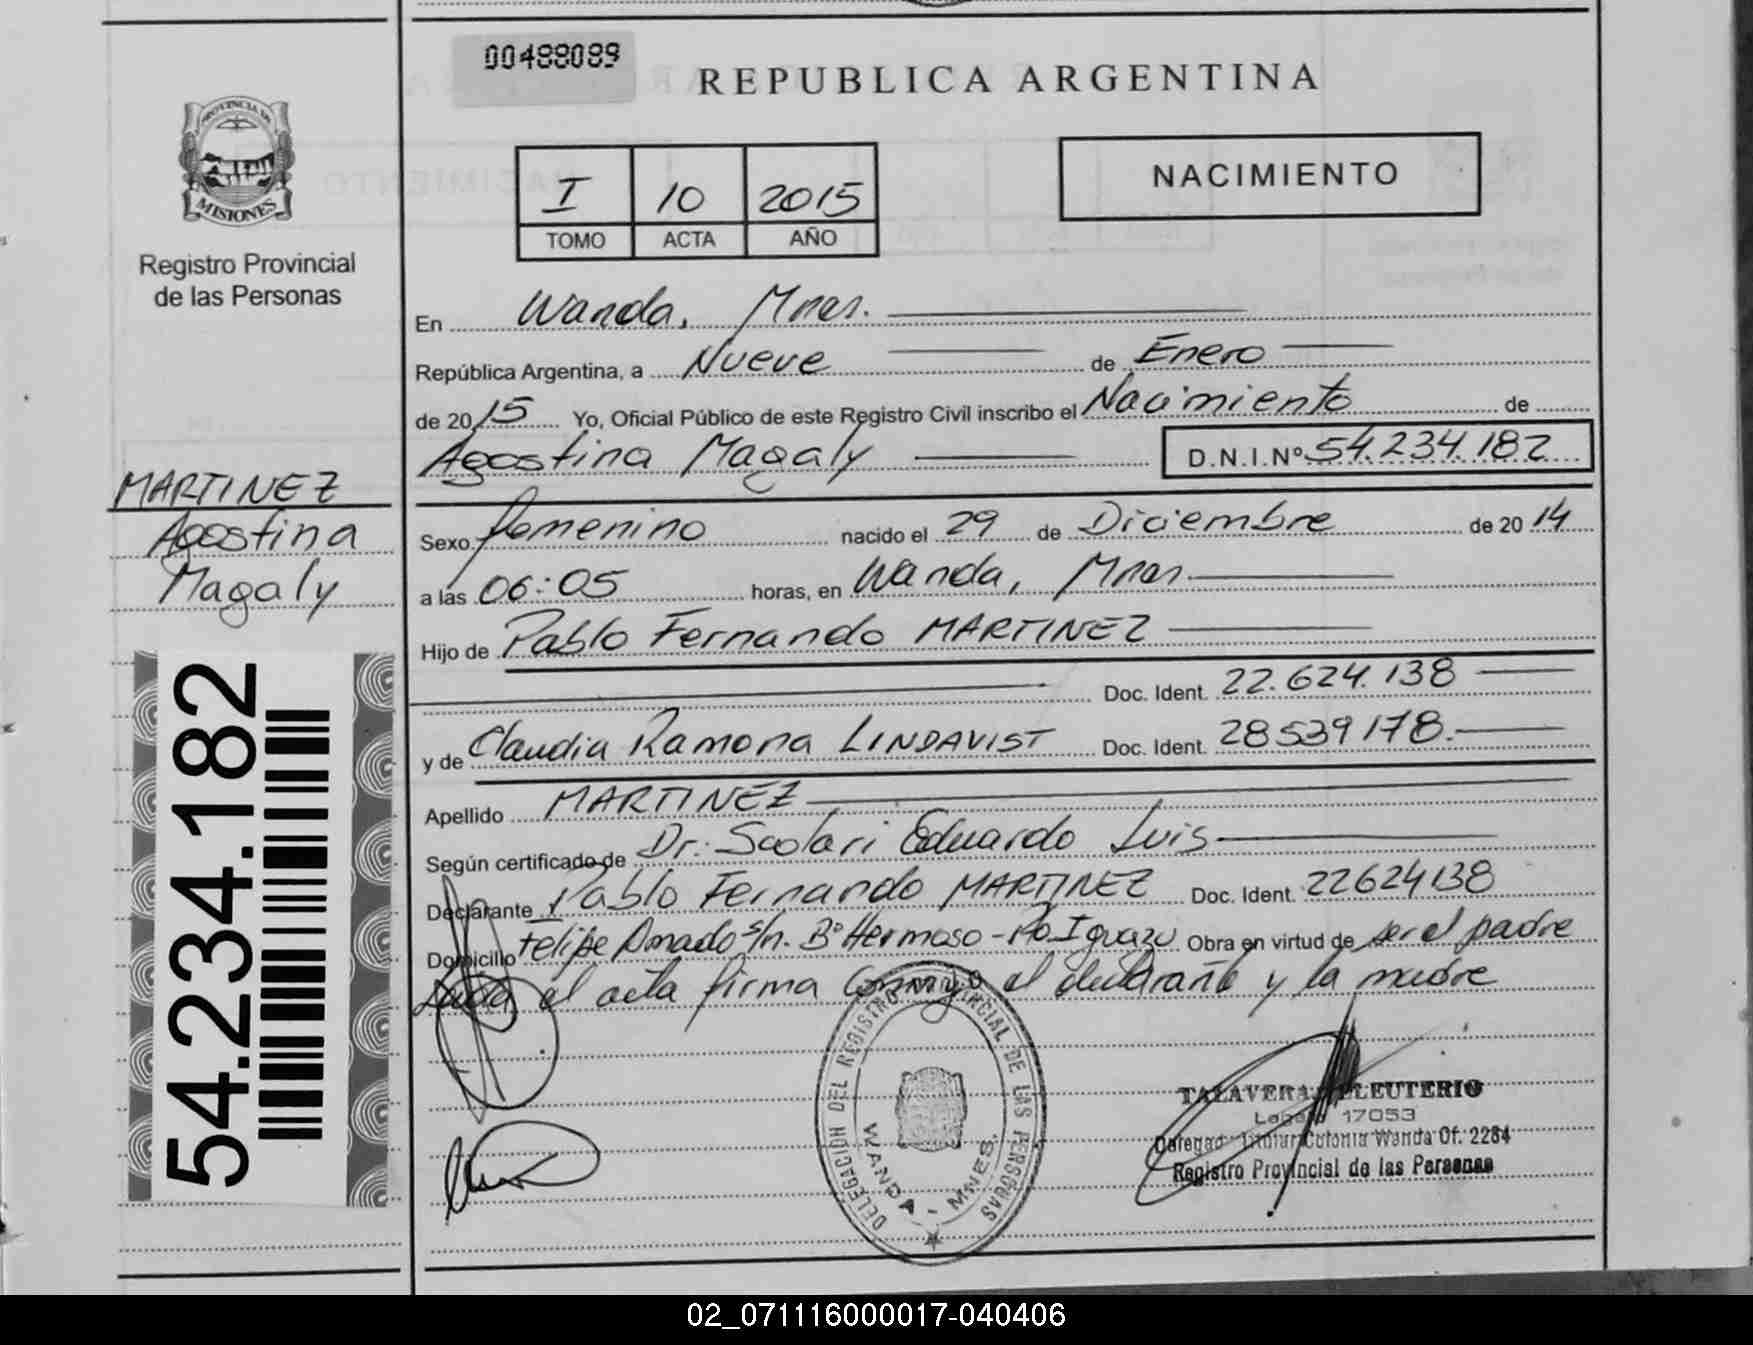 00488089
REPUBLICA ARGENTINA
PROVINCIA DE
MISIONES
Registro Provincial
de las Personas
I 10 2015
TOMO ACTA AÑO
NACIMIENTO
En Wanda, Mnes.
República Argentina, a Nueve de Enero
de 2015 Yo, Oficial Público de este Registro Civil inscribo el Nacimiento de
Agostina Magaly D.N.I.Nº 54.234.182
MARTINEZ
Agostina
Magaly
54.234.182
Sexo femenino nacido el 29 de Diciembre de 2014
a las 06:05 horas, en Wanda, Mnes
Hijo de Pablo Fernando MARTINEZ
Doc. Ident. 22.624.138
y de Claudia Ramona LINDAVIST Doc. Ident. 28539178.
Apellido MARTINEZ
Según certificado de Dr. Scolari Eduardo Luis
Declarante Pablo Fernando MARTINEZ Doc. Ident. 22624138
Domicilio Felipe Amado s/n. Bº Hermoso - Pto Iguazu Obra en virtud de ser el padre
el acta firma conmigo el declarante y la madre
DELEGACION DEL REGISTRO PROVINCIAL DE LAS PERSONAS
WANDA - MNES.
TALAVERA ELEUTERIO
Legajo 17053
Delegado Titular Colonia Wanda Of. 2284
Registro Provincial de las Personas
02_071116000017-040406